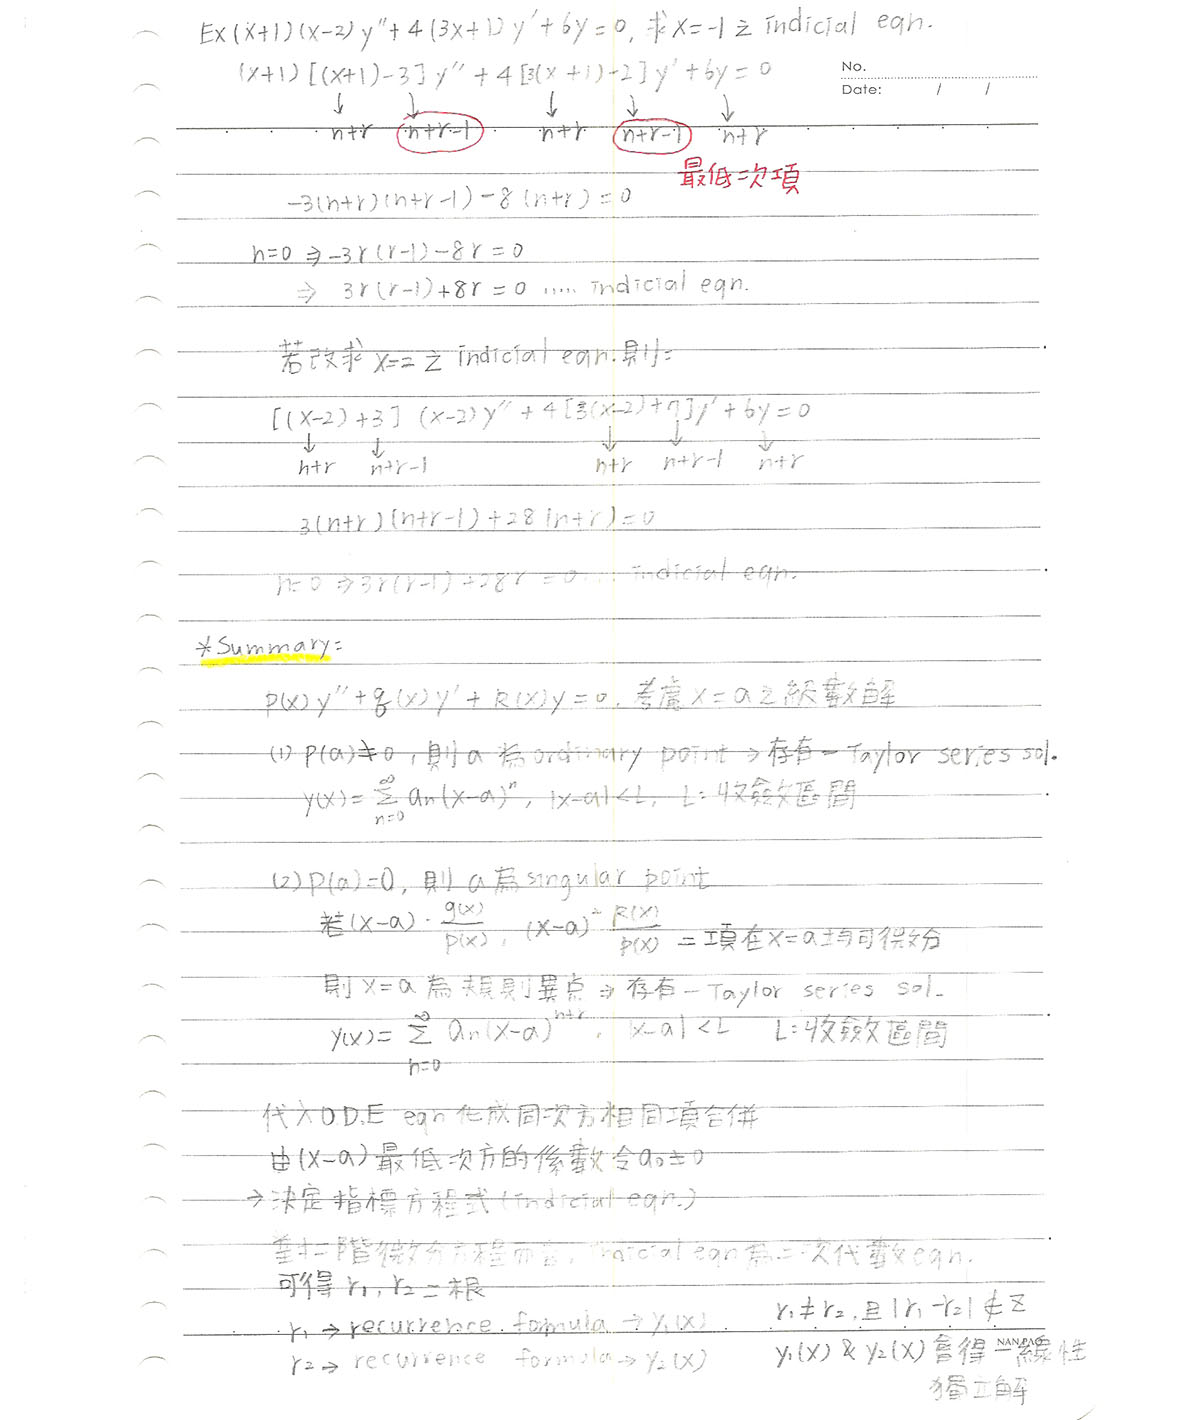 Ex (x+1)(x-2)y''+4(3x+1)y'+6y=0, 求 x=-1 之 indicial eqn.
(x+1)[(x+1)-3]y''+4[3(x+1)-2]y'+6y=0
No.
Date: / /
↓ ↓ ↓ ↓ ↓
n+r n+r-1 n+r n+r-1 n+r
最低次項
-3(n+r)(n+r-1)-8(n+r)=0
n=0 ⇒ -3r(r-1)-8r=0
⇒ 3r(r-1)+8r=0 ..... indicial eqn.
若改求 x=2 之 indicial eqn. 則:
[(x-2)+3](x-2)y''+4[3(x-2)+7]y'+6y=0
↓ ↓ ↓ ↓ ↓
n+r n+r-1 n+r n+r-1 n+r
3(n+r)(n+r-1)+28(n+r)=0
n=0 ⇒ 3r(r-1)+28r=0... indicial eqn.
*Summary:
p(x)y''+q(x)y'+R(x)y=0, 考慮 x=a 之級數解
(1) p(a)≠0, 則 a 為 ordinary point → 存有一 Taylor series sol.
y(x)=∑_{n=0}^{∞} an(x-a)^n, |x-a|<L, L: 收斂區間
(2) p(a)=0, 則 a 為 singular point
若 (x-a)·q(x)/p(x), (x-a)² R(x)/p(x) 二項在 x=a 均可微分
則 x=a 為規則異点 ⇒ 存有一 Taylor series sol.
y(x)=∑_{n=0}^{∞} an(x-a)^{n+r}, |x-a|<L L: 收斂區間
代入 O.D.E eqn 化成同次方相同項合併
由 (x-a) 最低次方的係數令 a0≠0
→ 決定指標方程式 (indicial eqn.)
對二階微分方程而言, indicial eqn 為二次代數 eqn.
可得 r1, r2 二根
r1 → recurrence formula → y1(x)
r2 → recurrence formula → y2(x)
r1≠r2, 且 |r1-r2|∉Z
NAN PAO
y1(x) & y2(x) 會得一線性
獨立解